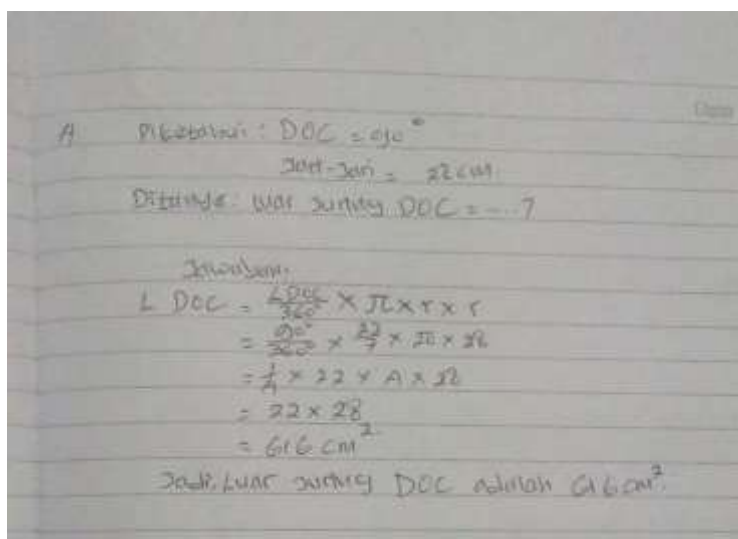 A Diketahui : DOC = 90°
Jari-Jari = 28 cm
Ditanya : luas juring DOC = .... ?
Jawaban:
L DOC = ∠DOC/360° × π × r × r
= 90°/360° × 22/7 × 28 × 28
= 1/4 × 22 × 4 × 28
= 22 × 28
= 616 cm²
Jadi, Luas juring DOC adalah 616 cm².